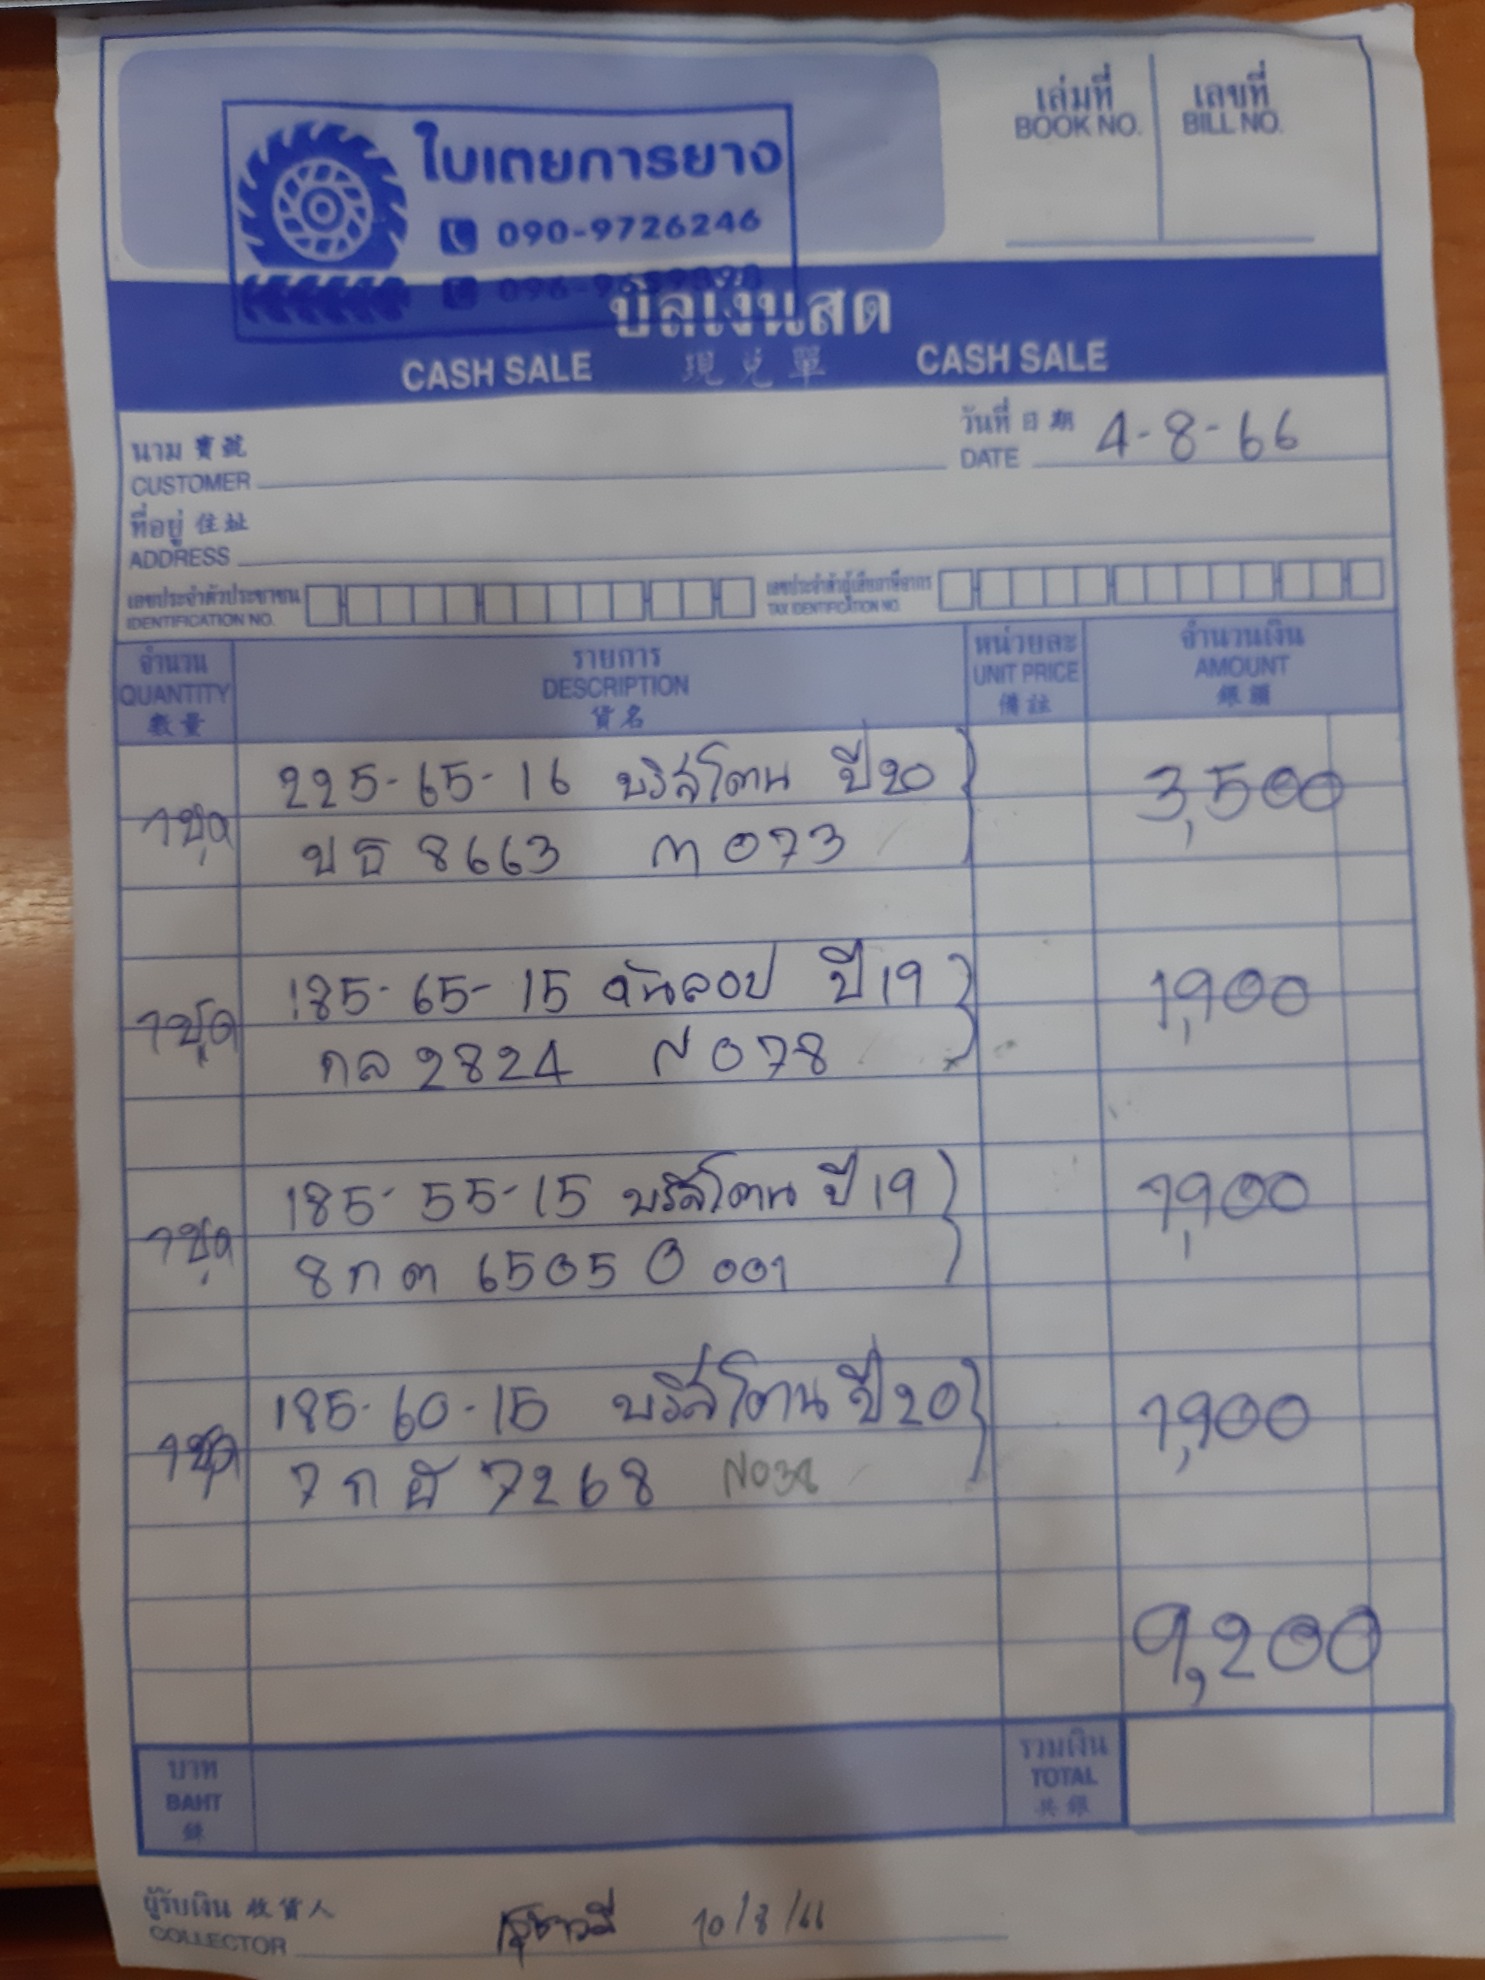 เล่มที่ เลขที่
BOOK NO. BILL NO.
ใบเตยการยาง
090-9726246
บิลเงินสด
CASH SALE 現兌單 CASH SALE
นาม 寶號 วันที่ 日期 4-8-66
CUSTOMER DATE
ที่อยู่ 住址
ADDRESS
เลขประจำตัวประชาชน เลขประจำตัวผู้เสียภาษีอากร
IDENTIFICATION NO. TAX IDENTIFICATION NO.
จำนวน รายการ หน่วยละ จำนวนเงิน
QUANTITY DESCRIPTION UNIT PRICE AMOUNT
數量 貨名 備註 銀額
1ชุด 225-65-16 บริสโตน ปี20 3,500
บธ 8663 ท073
1ชุด 185-65-15 ดันลอป ปี19 1,900
กล 2824 N078
1ชุด 185-55-15 บริสโตน ปี19 1,900
8กต 6505 O 001
1ชุด 185-60-15 บริสโตน ปี20 1,900
7267268
9,200
บาท รวมเงิน
BAHT TOTAL
銖 共銀
ผู้รับเงิน 收貨人
COLLECTOR 10/8/66